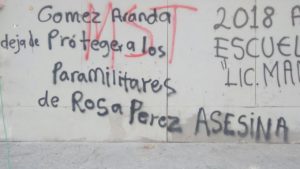 Gomez Aranda
deja de Proteger a los
Paramilitares
de Rosa Perez ASESINA
MST
2018 A
ESCUEL
"LIC. MAR